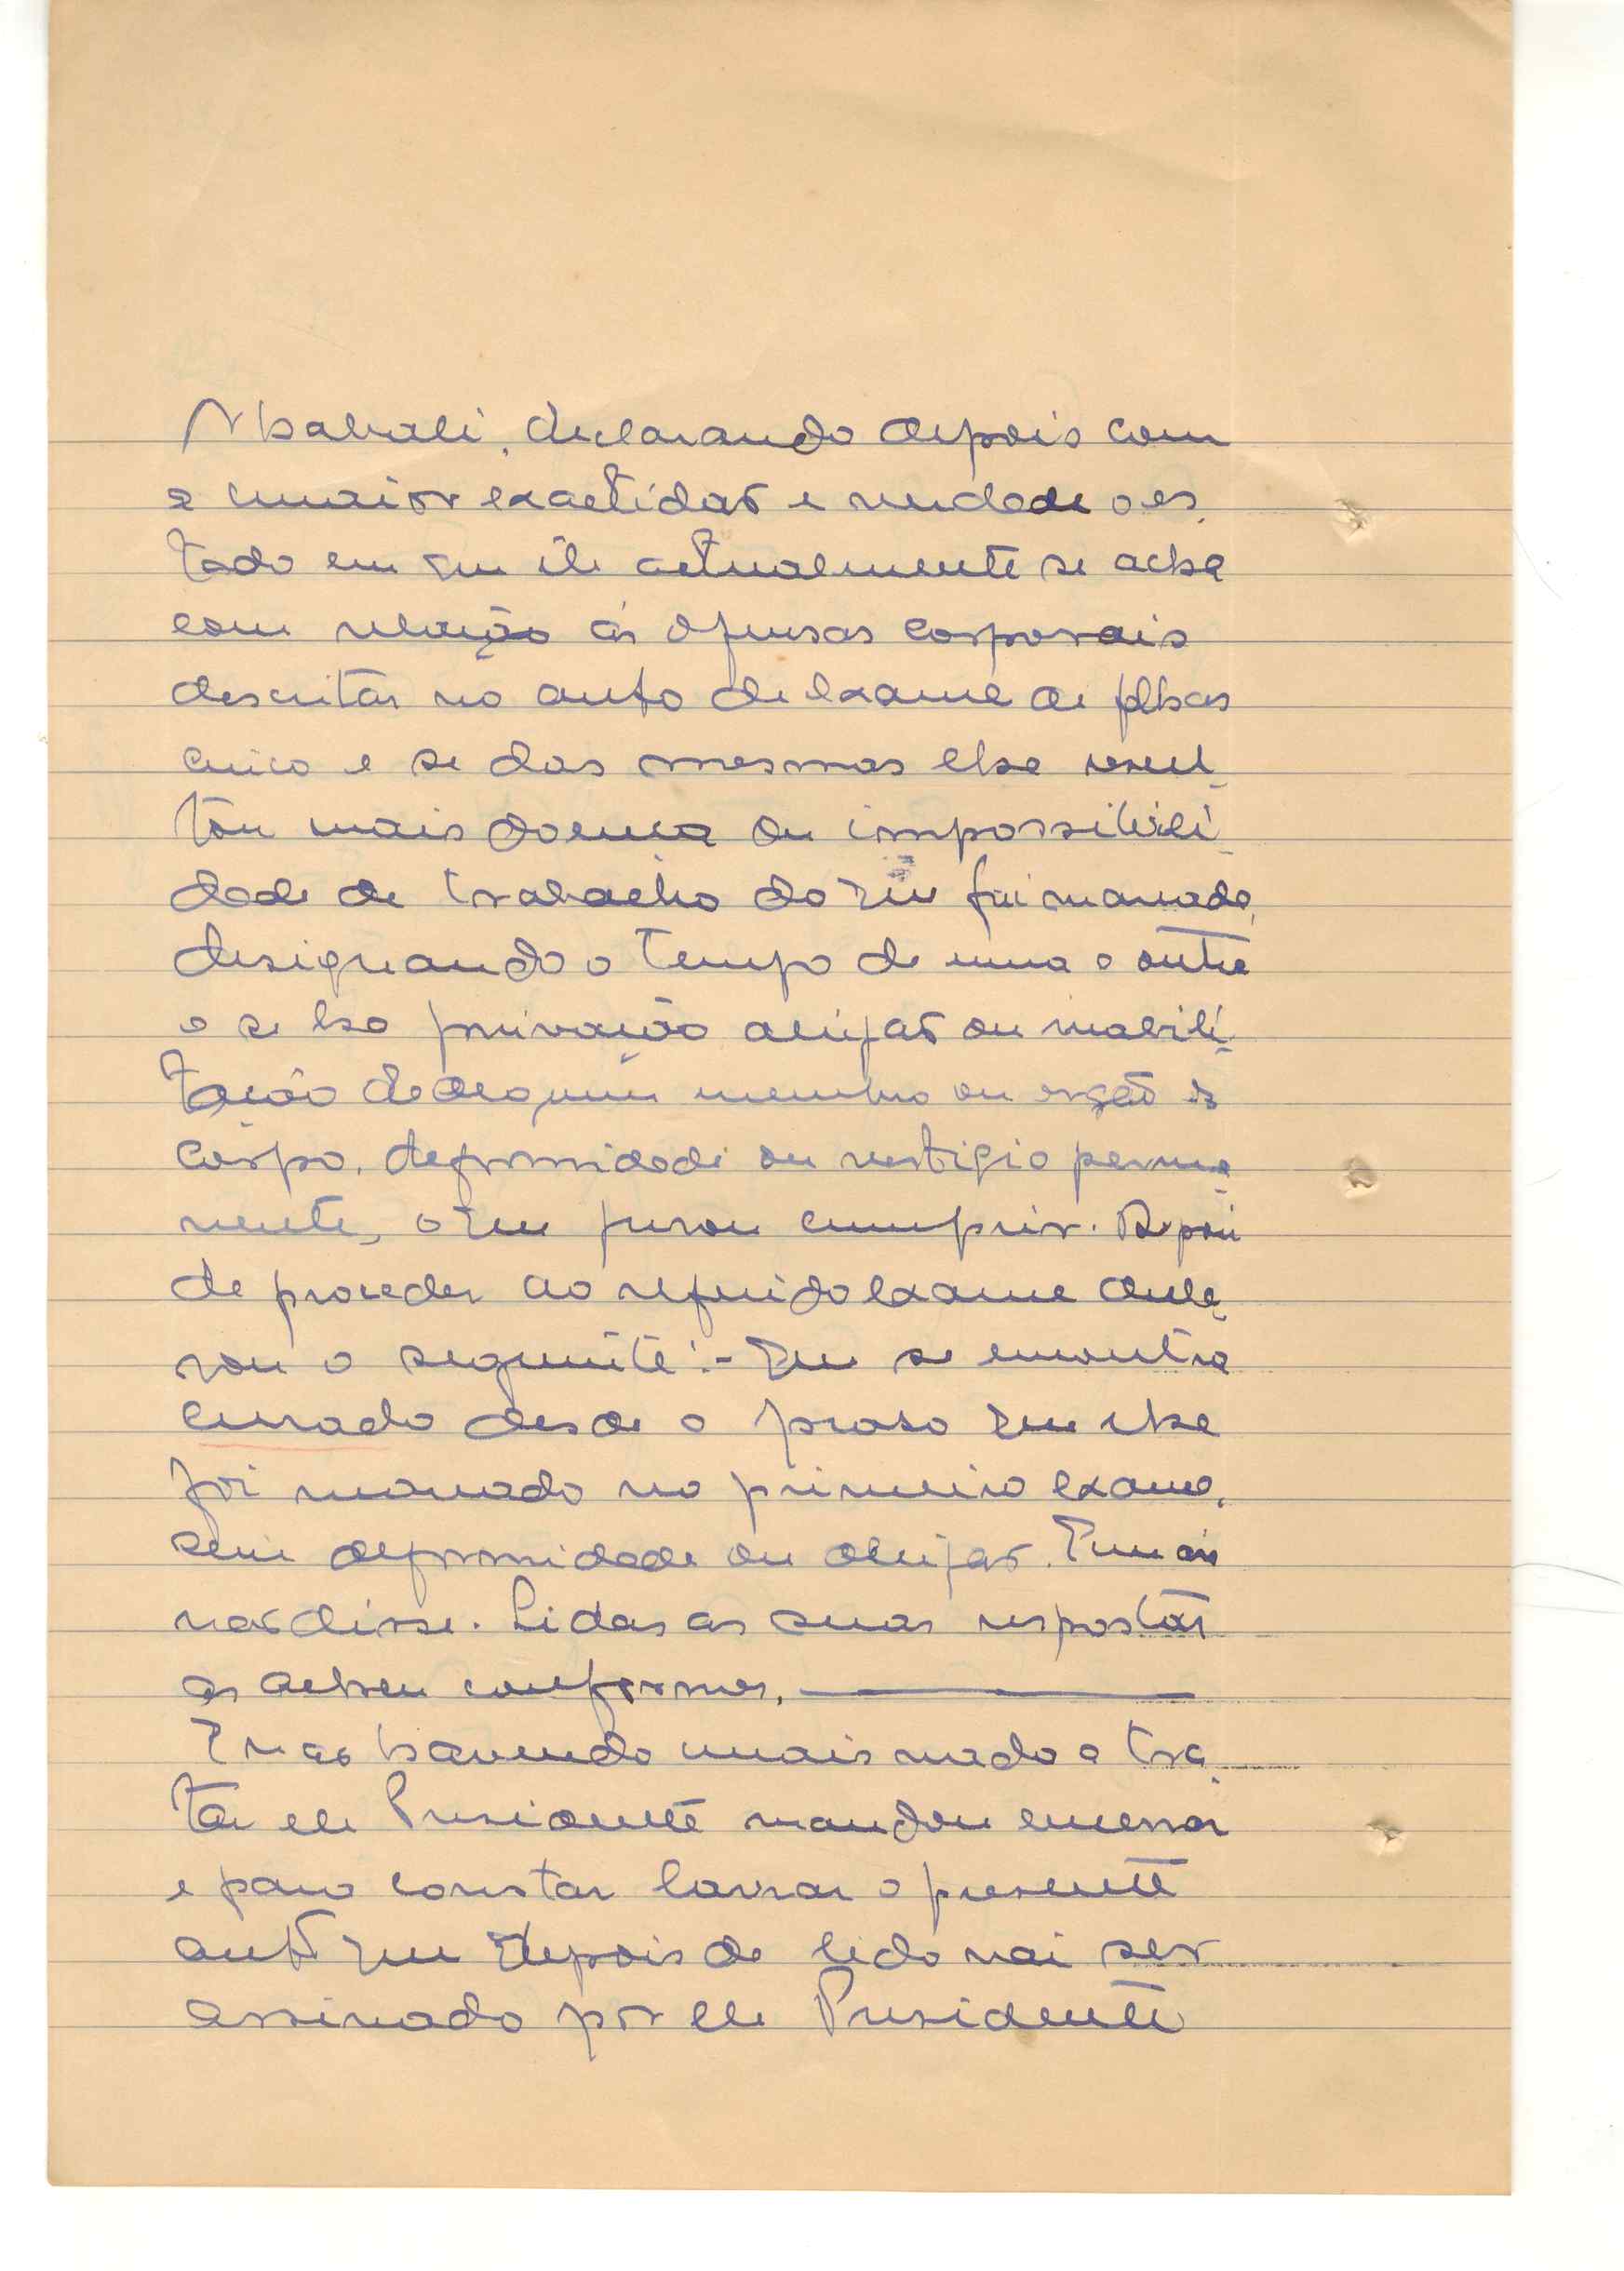 Nbabali, declarando depois com
a maior exactidão e verdade o es-
tado em que ele actualmente se acha
com relação ás ofensas corporais
descritas no auto de exame de folhas
cinco e se das mesmas lhe resul-
tou mais doença ou impossibili-
dade de trabalho do que foi marcado,
designando o tempo de uma e outra
e se ha privação aleijão ou inabili-
tação de algum membro ou orgão do
corpo, deformidade ou vestigio perma-
nente, o que jurou cumprir. Depois
de proceder ao referido exame decla-
rou o seguinte:- Que se encontra
curado desde o praso que lhe
foi marcado no primeiro exame,
sem deformidade ou aleijão. E mais
não disse. Lidas as suas respostas
as achou conformes.
E não havendo mais nada a tra-
tar ele Presidente mandou encerrar
e para constar lavrar o presente
auto que depois de lido vai ser
assinado por ele Presidente